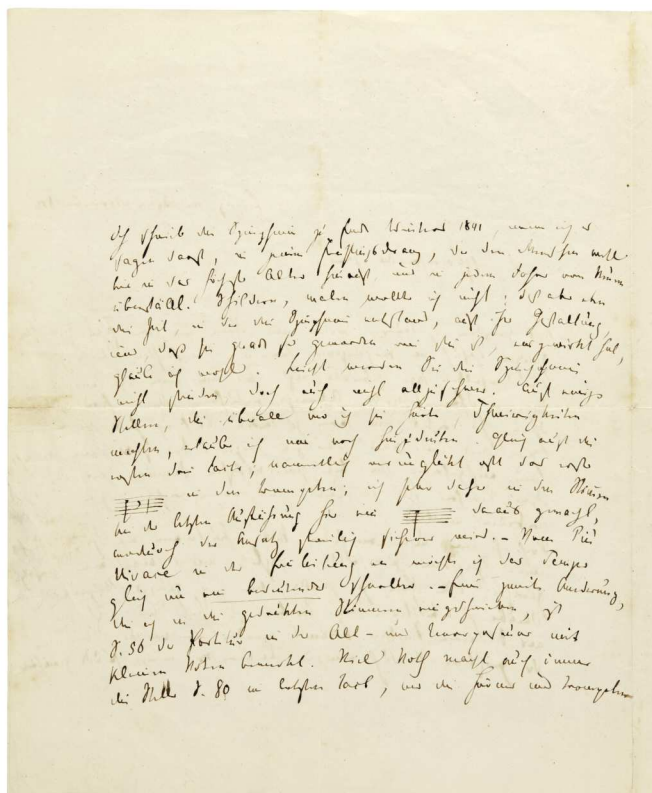 Ich schrieb die Symphonie zu Ende Winters 1841, wenn ich es
sagen darf, in jenem Frühlingsdrang, der den Menschen wohl
bis in das höchste Alter hinreißt und in jedem Jahre von Neuem
überfällt. Schildern, malen wollte ich nicht; daß aber eben
die Zeit, in der die Symphonie entstand, auf ihre Gestaltung,
und daß sie grade so geworden wie sie ist, eingewirkt hat,
glaube ich wohl. Leicht werden Sie die Symphonie
nicht finden doch auch nicht allzuschwer. Auf einige
Stellen, die überall wo ich sie hörte, Schwierigkeiten
machten, erlaube ich mir noch hinzudeuten. Gleich auf die
ersten drei Takte; namentlich verunglückt oft das erste
in den Trompeten; ich habe daher in den Stimmen
bei der letzten Aufführung hier ein daraus gemacht,
wodurch der Ansatz freilich sicherer wird. – Vom Più
Vivace in der Einleitung an möchte ich das Tempo
gleich um ein bedeutendes schneller. – Eine zweite Änderung,
die ich in die gedruckten Stimmen eingeschrieben, ist
S. 56 der Partitur in der Alt- und Tenorposaune mit
kleinen Noten bemerkt. Viel Noth macht auch immer
die Stelle S. 80 im letzten Takt, wo die Hörner und Trompeten